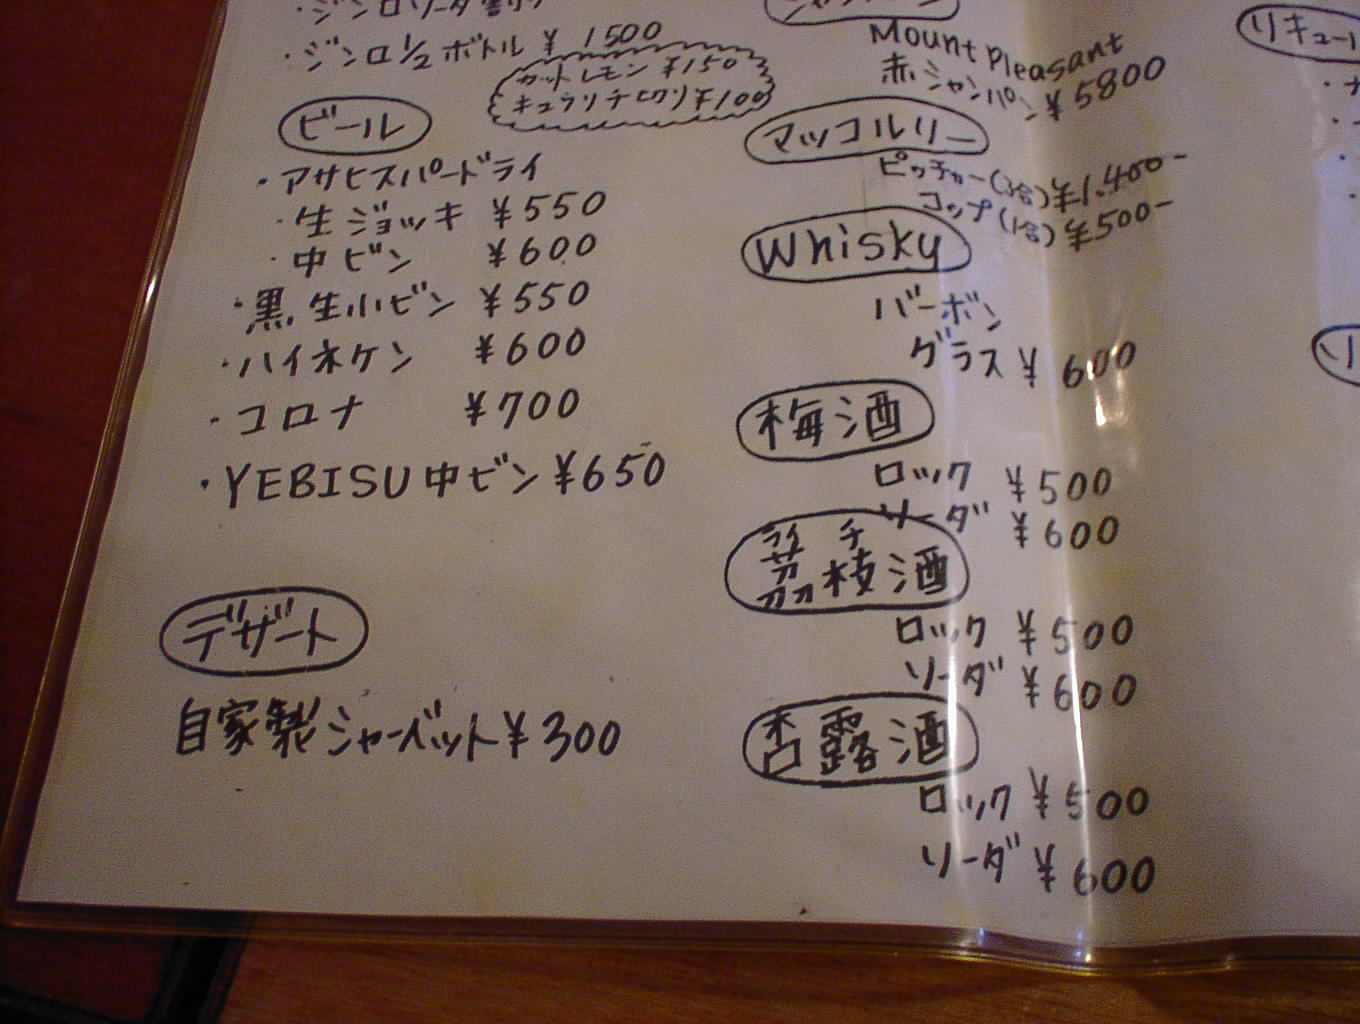 ・ジンロソーダ割り
・ジンロ1/2ボトル ¥1500
カットレモン ¥150
キュウリチビクリ ¥100
ビール
・アサヒスパードライ
・生ジョッキ ¥550
・中ビン ¥600
・黒生小ビン ¥550
・ハイネケン ¥600
・コロナ ¥700
・YEBISU中ビン ¥650
デザート
自家製シャーベット ¥300
Mount Pleasant
赤シャンパン ¥5800
マッコルリー
ピッチャー(3合) ¥1,400-
コップ(1合) ¥500-
Whisky
バーボン
グラス ¥600
梅酒
ロック ¥500
ソーダ ¥600
ライチ
茘枝酒
ロック ¥500
ソーダ ¥600
杏露酒
ロック ¥500
ソーダ ¥600
リキュール